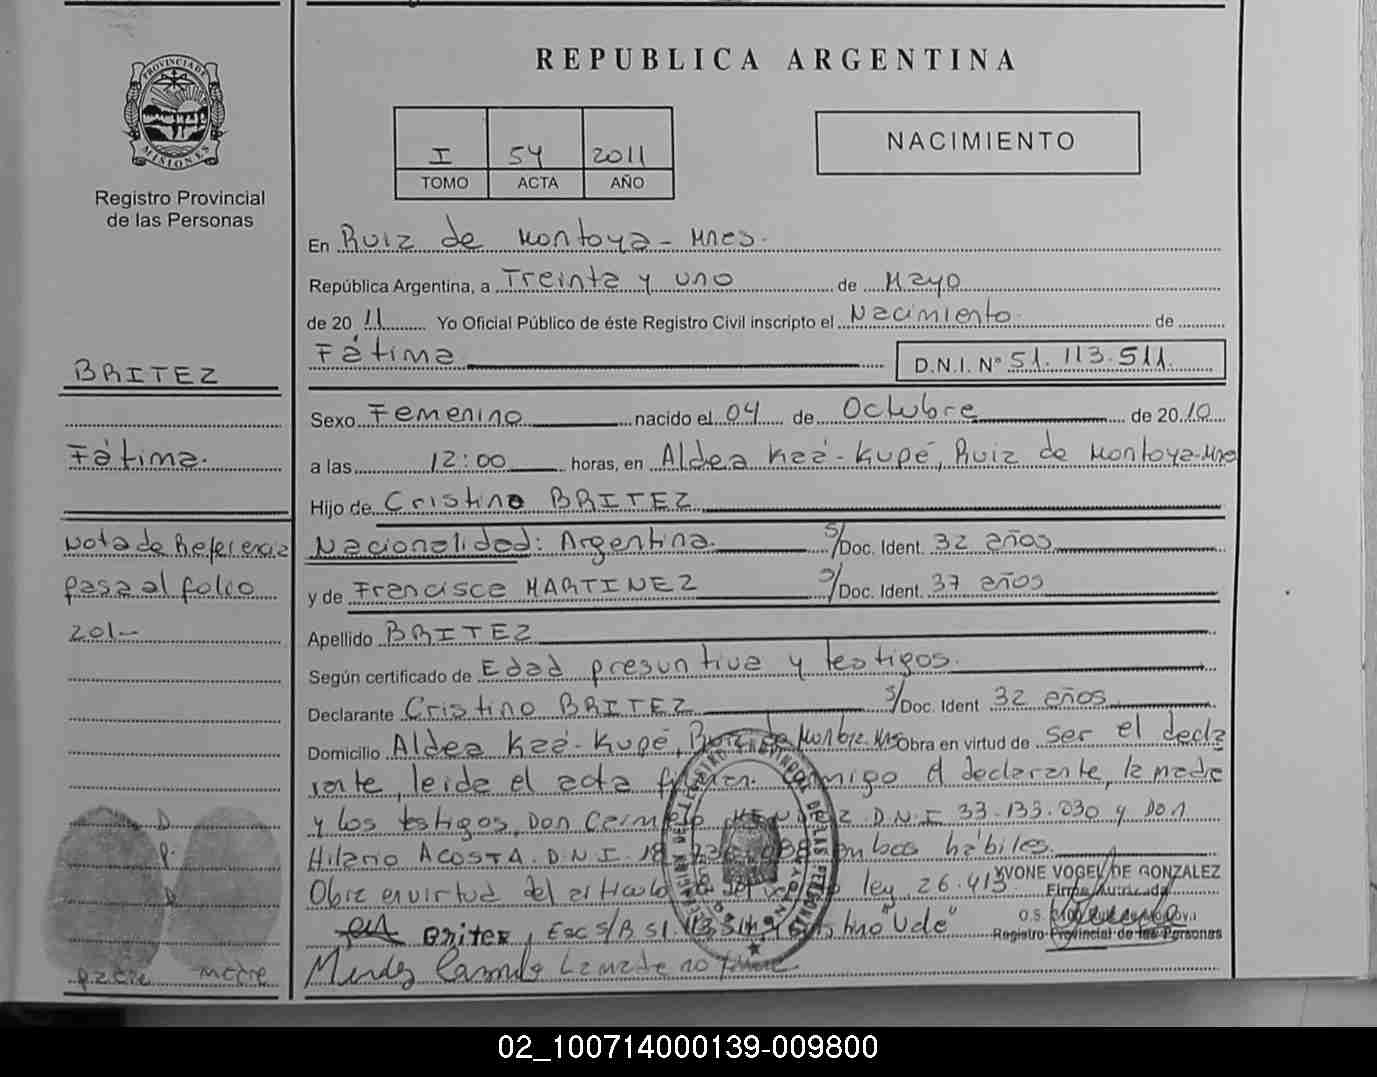 PROVINCIA DE
MISIONES
Registro Provincial
de las Personas
BRITEZ
Fátima.
Nota de Referencia
pasa al folio
201-
D.
P.
D
padre madre
REPUBLICA ARGENTINA
I 54 2011
TOMO ACTA AÑO
NACIMIENTO
En Ruiz de Montoya - Mnes.
República Argentina, a Treinta y uno de Mayo
de 20 11 Yo Oficial Público de éste Registro Civil inscripto el Nacimiento de
Fátima D.N.I. Nº 51.113.511.
Sexo Femenino nacido el 04 de Octubre de 20 10
a las 12:00 horas, en Aldea Kaá-Kupé, Ruiz de Montoya-Mnes
Hijo de Cristino BRITEZ
Nacionalidad: Argentina. S/Doc. Ident. 32 años
y de Francisca MARTINEZ S/Doc. Ident. 37 años
Apellido BRITEZ
Según certificado de Edad presuntiva y testigos.
Declarante Cristino BRITEZ S/Doc. Ident 32 años
Domicilio Aldea Kaá-Kupé, Ruiz de Montoya. Mnes Obra en virtud de ser el decla
rante, leida el acta firman conmigo el declarante, la madre
y los testigos, Don D.N.I 33.133.030 y Don
Hilario ACOSTA. D.N.I. 18 ambos hábiles.
Obra en virtud del articulo ley 26.413
YVONE VOGEL DE GONZALEZ
Firma Autorizada
Britez, Esc S/B 51.113.511 "Vale"
Registro Provincial de las Personas
Mendez la madre no
02_100714000139-009800